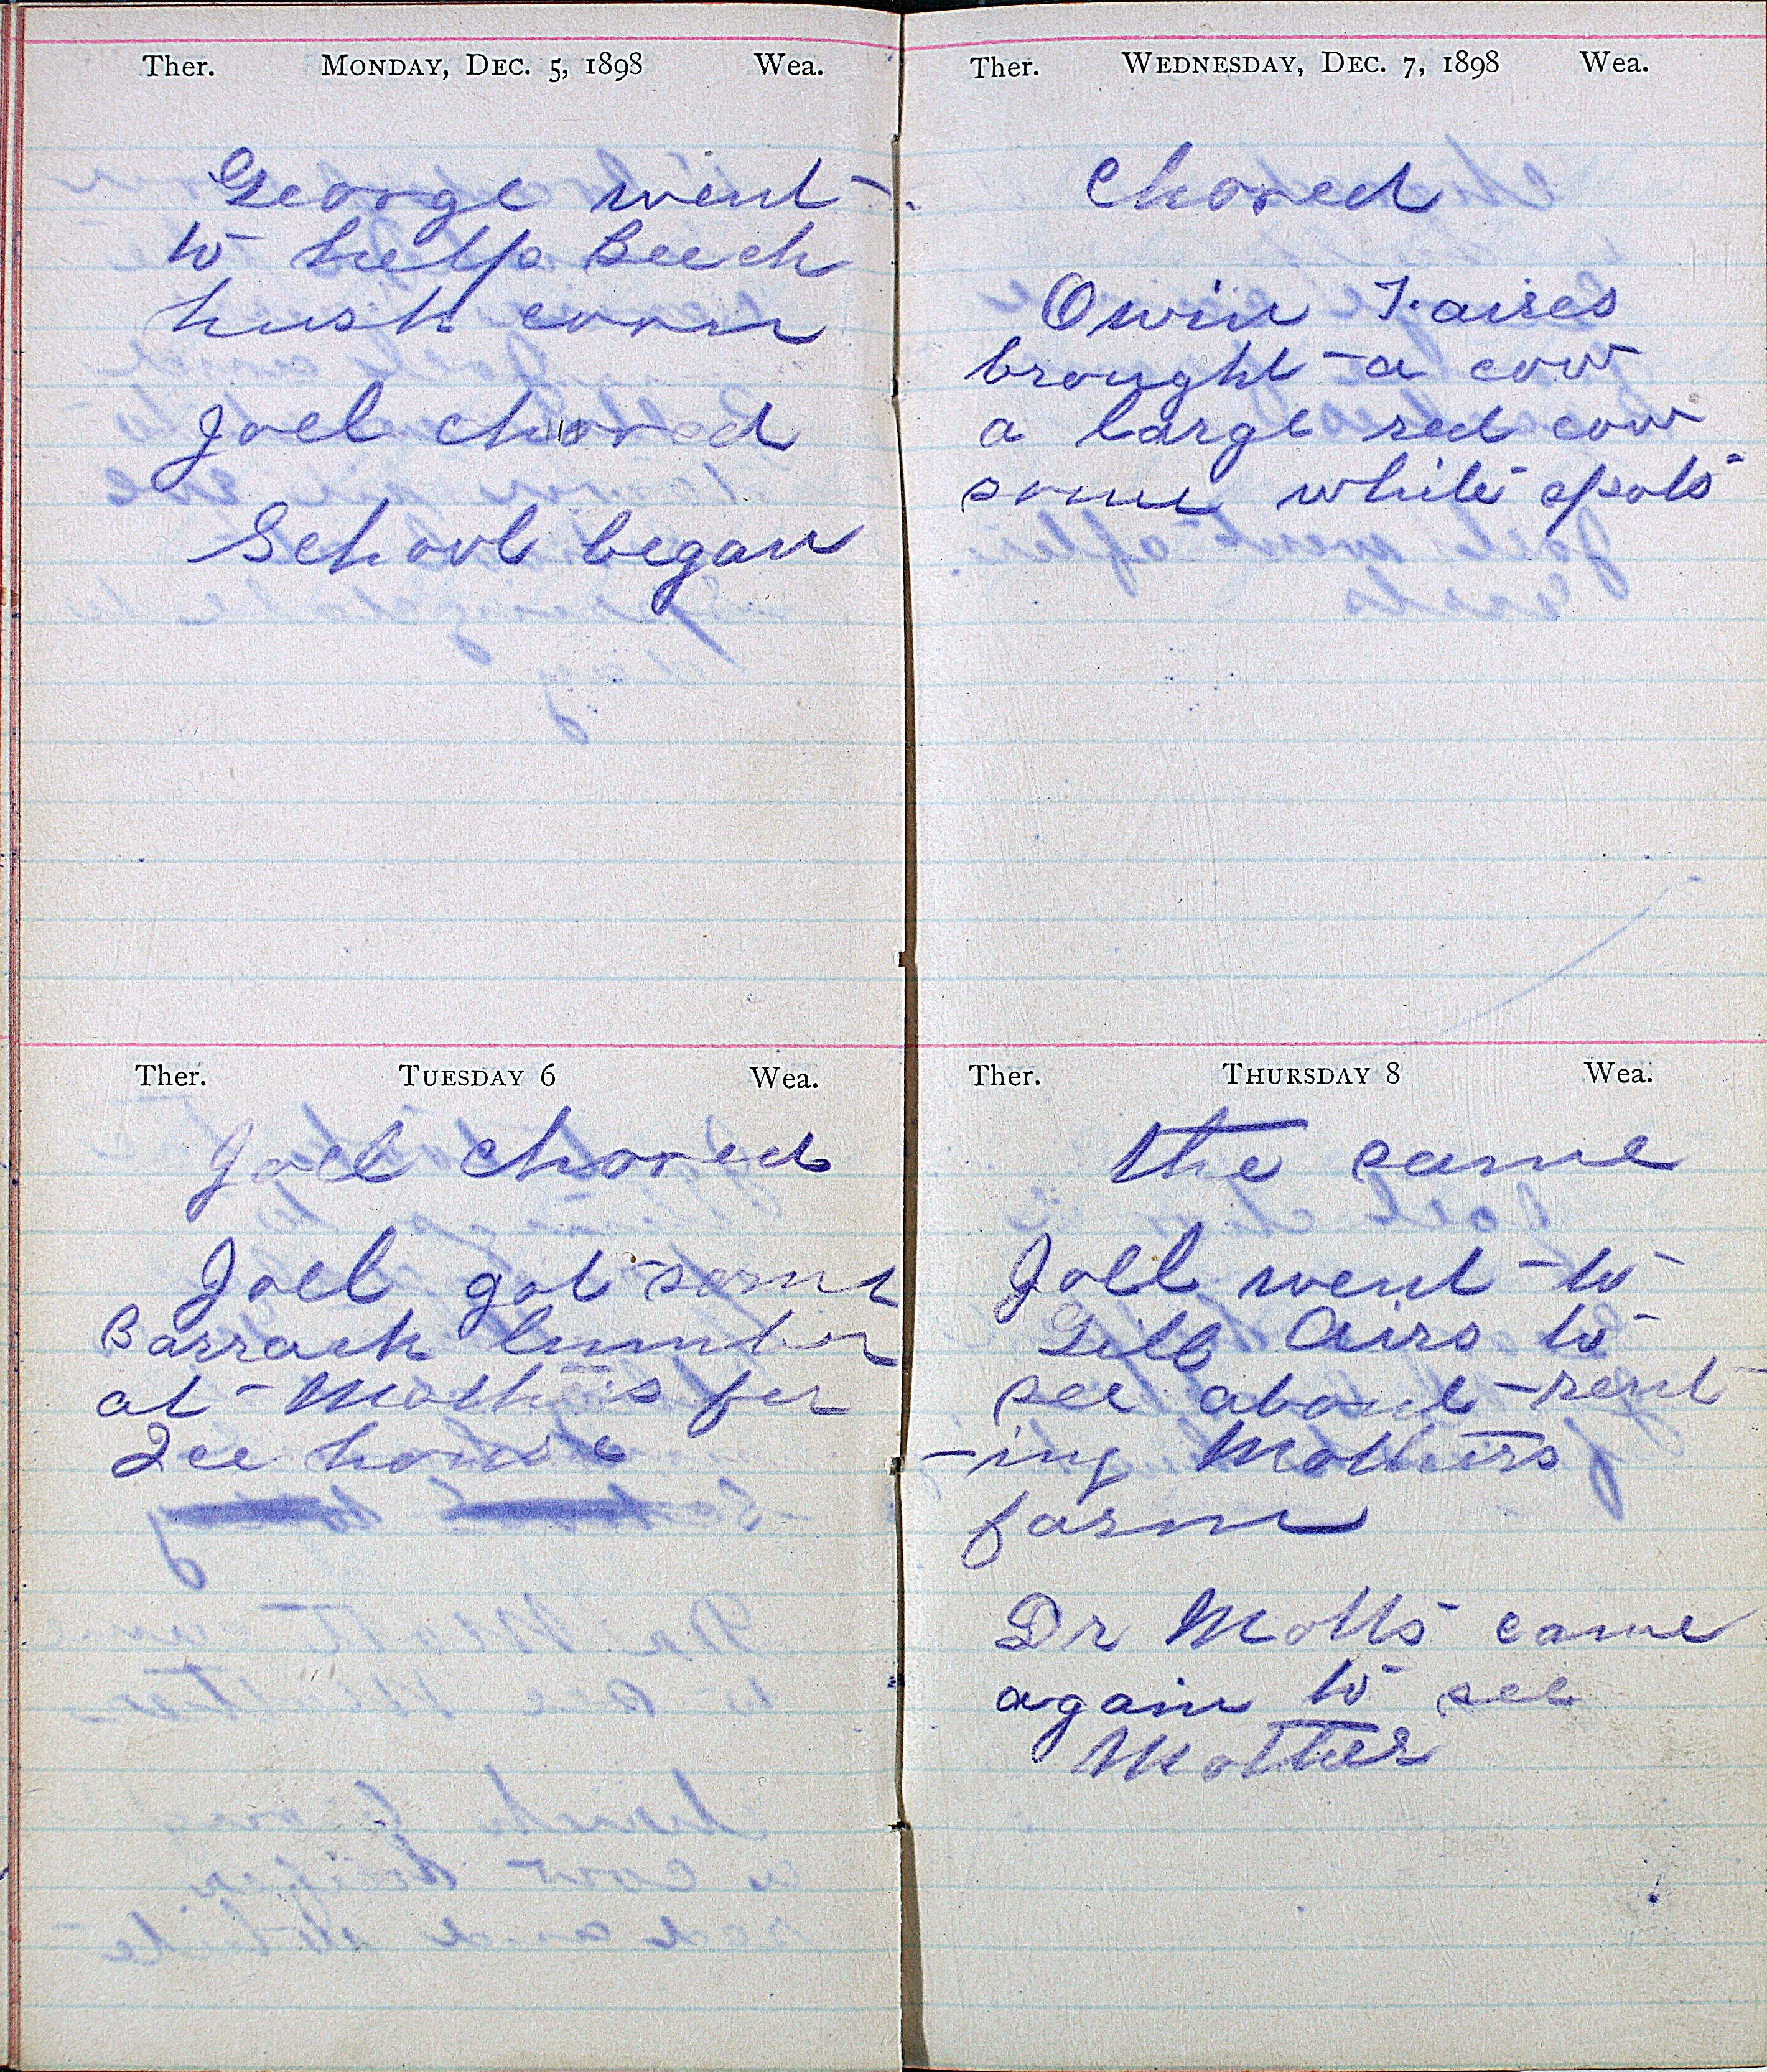 Ther. MONDAY, DEC. 5, 1898 Wea.
George went
to help Beech
husk corn
Joel chored
School began
Ther. TUESDAY 6 Wea.
Joel chored
Joel got some
Barrack lumber
at Mothers for
Ice house
Ther. WEDNESDAY, DEC. 7, 1898 Wea.
Chored
Owin Faires
brought a cow
a large red cow
some white spots
Ther. THURSDAY 8 Wea.
the same
Joel went to
Airs to
see about rent
-ing Mothers
farm
Dr Motts came
again to see
Mother